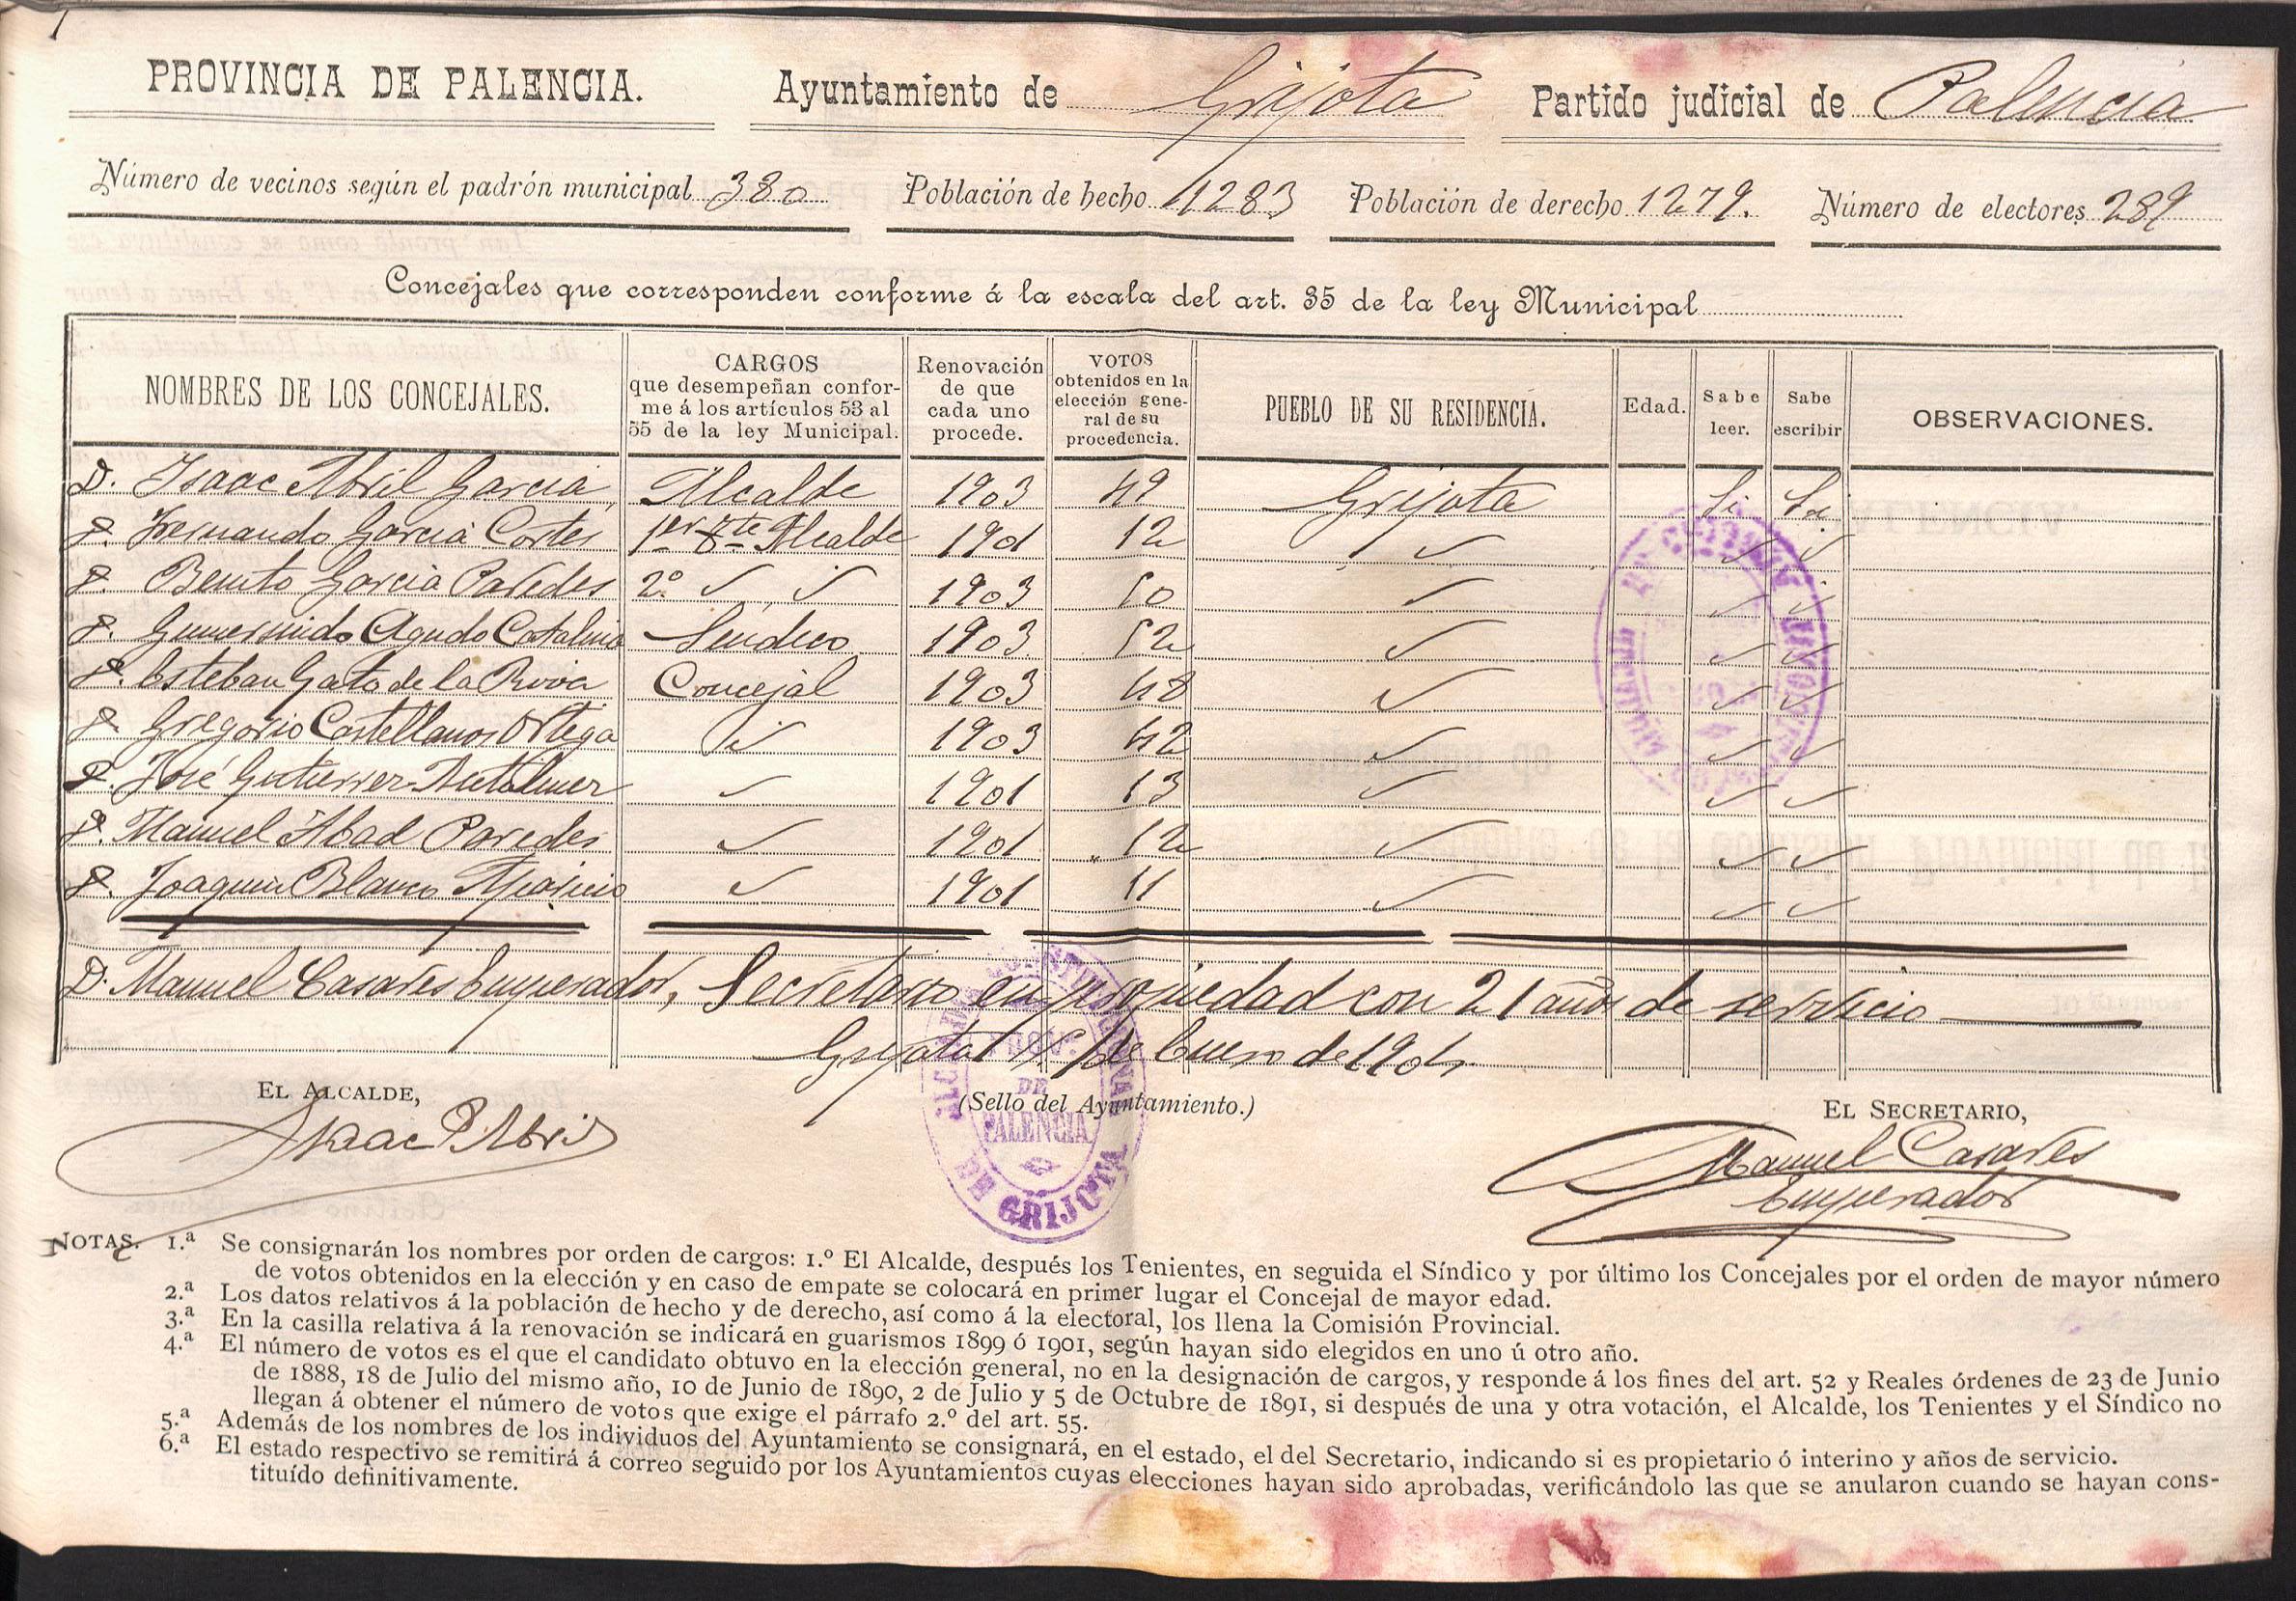 PROVINCIA DE PALENCIA. Ayuntamiento de Grijota Partido judicial de Palencia
Número de vecinos según el padrón municipal 380 Población de hecho 1283 Población de derecho 1279. Número de electores 289
Concejales que corresponden conforme á la escala del art. 35 de la ley Municipal
NOMBRES DE LOS CONCEJALES. CARGOS que desempeñan conforme á los artículos 53 al 55 de la ley Municipal. Renovación de que cada uno procede. VOTOS obtenidos en la elección general de su procedencia. PUEBLO DE SU RESIDENCIA. Edad. Sabe leer. Sabe escribir OBSERVACIONES.
D. Isaac Abril Garcia Alcalde 1903 49 Grijota Si Si
D. Fernando Garcia Cortes 1er Tte Alcalde 1901 12 ✓ ✓ ✓
D. Benito Garcia Paredes 2º ✓ ✓ 1903 50 ✓ ✓ ✓
D. Gumersindo Agudo Catalina Sindico 1903 52 ✓ ✓ ✓
D. Esteban Gato de la Riva Concejal 1903 48 ✓ ✓ ✓
D. Gregorio Castellanos Ortega ✓ 1903 42 ✓ ✓ ✓
D. José Gutierrez ✓ 1901 13 ✓ ✓ ✓
D. Manuel Abad Paredes ✓ 1901 12 ✓ ✓ ✓
D. Joaquin Blanco Aparicio ✓ 1901 11 ✓ ✓ ✓
D. Manuel Casares Emperador, Secretario en propiedad con 21 años de servicio
Grijota 1º de Enero de 1904
EL ALCALDE, (Sello del Ayuntamiento.) EL SECRETARIO,
Isaac P. Abril Manuel Casares
Emperador
ALCALDIA CONSTITUCIONAL DE GRIJOTA
PROV.
DE
PALENCIA
NOTAS. 1.ª Se consignarán los nombres por orden de cargos: 1.º El Alcalde, después los Tenientes, en seguida el Síndico y por último los Concejales por el orden de mayor número
de votos obtenidos en la elección y en caso de empate se colocará en primer lugar el Concejal de mayor edad.
2.ª Los datos relativos á la población de hecho y de derecho, así como á la electoral, los llena la Comisión Provincial.
3.ª En la casilla relativa á la renovación se indicará en guarismos 1899 ó 1901, según hayan sido elegidos en uno ú otro año.
4.ª El número de votos es el que el candidato obtuvo en la elección general, no en la designación de cargos, y responde á los fines del art. 52 y Reales órdenes de 23 de Junio
de 1888, 18 de Julio del mismo año, 10 de Junio de 1890, 2 de Julio y 5 de Octubre de 1891, si después de una y otra votación, el Alcalde, los Tenientes y el Síndico no
llegan á obtener el número de votos que exige el párrafo 2.º del art. 55.
5.ª Además de los nombres de los individuos del Ayuntamiento se consignará, en el estado, el del Secretario, indicando si es propietario ó interino y años de servicio.
6.ª El estado respectivo se remitirá á correo seguido por los Ayuntamientos cuyas elecciones hayan sido aprobadas, verificándolo las que se anularon cuando se hayan cons-
tituído definitivamente.